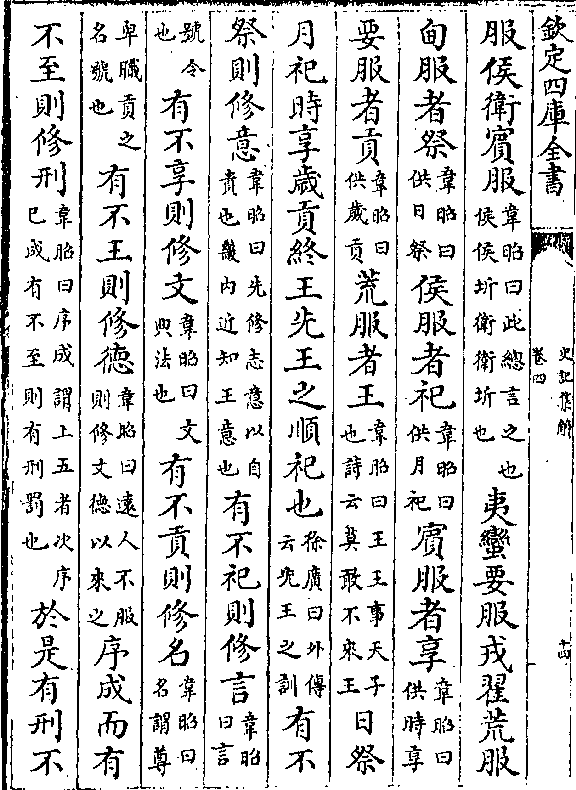 欽定四庫全書
史記集解
卷四
十四
服侯衛賓服韋昭曰此總言之也侯侯圻衛衛圻也夷蠻要服戎翟荒服
甸服者祭韋昭曰供日祭侯服者祀韋昭曰供月祀賓服者享韋昭曰供時享
要服者貢韋昭曰供歲貢荒服者王韋昭曰王王事天子也詩云莫敢不來王日祭
月祀時享歲貢終王先王之順祀也徐廣曰外傳云先王之訓有不
祭則修意韋昭曰先修志意以自責也畿内近知王意也有不祀則修言韋昭曰言
號令也有不享則修文韋昭曰文典法也有不貢則修名韋昭曰名謂尊
卑職貢之名號也有不王則修德韋昭曰遠人不服則修文德以來之序成而有
不至則修刑韋昭曰序成謂上五者次序已成有不至則有刑罰也於是有刑不